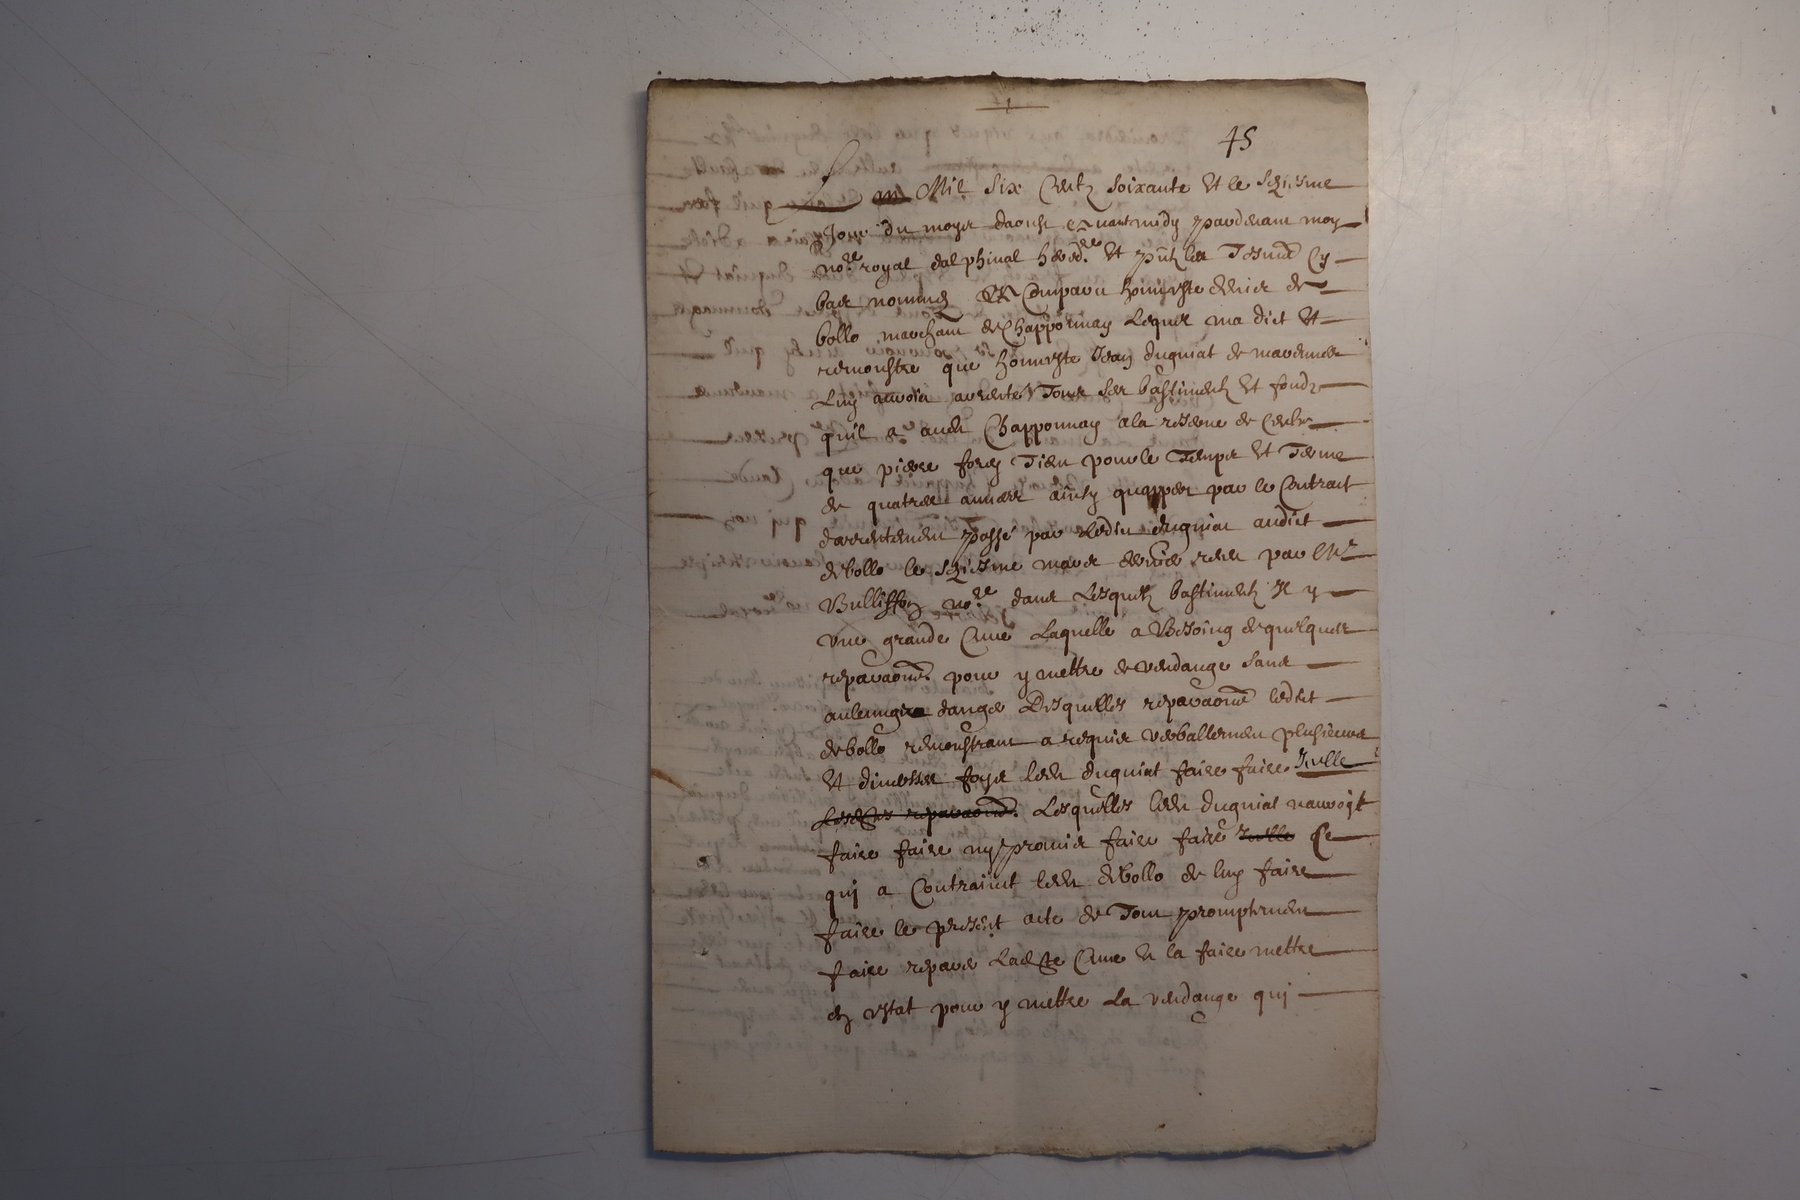 45
L'an Mil six Centz soixante et le seziesme
Jour du moys daoust avant midy pardevant moy
no.re royal dalphinal hered.re et p̄ntz les Tesmoīs Cy
bas nommez Comparu honneste de
bollo marchant de Chapponnay Lequel ma dict et
remonstre que honneste Jean duguiat de
Luy avoir arrenté Tous ses bastimentz et fondz
quil a audit Chapponnay a la reserve de Celuy
que pierre Tient pour le Temps et Terme
de quatre annees ainsy quappert par le Contract
darrentement passé par ledit duguiat audict
debollo le seziesme mars dernier receu par Mr
Vullisson no.re dans Lesquelz bastimentz Il y
une grande Cuve Laquelle a Besoing de quelques
reparaōns pour y mettre de vendange sans
aulcung danger Desquelles reparaōns ledict
debollo remonstrant a requis verballement plusieurs
et diverses foys ledit duguiat faire faire Icelle
Lesdictes reparaōns. Lesquelles ledit duguiat
faire faire ny promis faire faire Icelle Ce
qui a Contrainct ledit debollo de luy faire
faire le present acte de Tout promptement
faire reparer Ladicte Cuve et la faire mettre
en estat pour y mettre La vendange qui